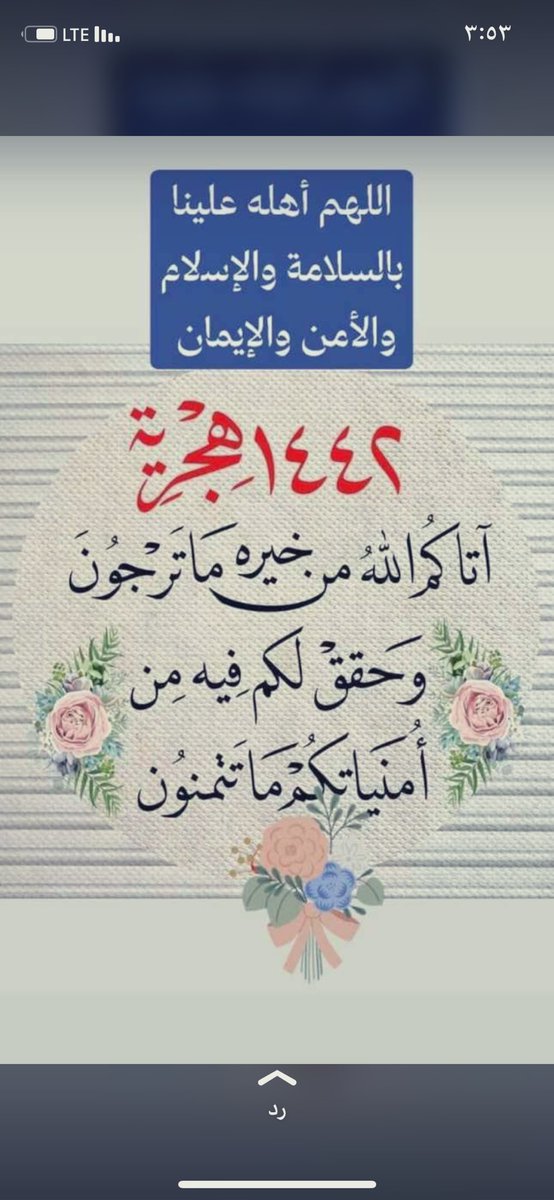 LTE
٣:٥٣
اللهم أهله علينا
بالسلامة والإسلام
والأمن والإيمان
١٤٤٢ هِجْرِيَة
آتاكُم اللهُ من خيره مَا تَرْجُونَ
وَحَققْ لَكم فِيه مِن
أُمنَياتكُمْ مَا تَتمنوُن
رد